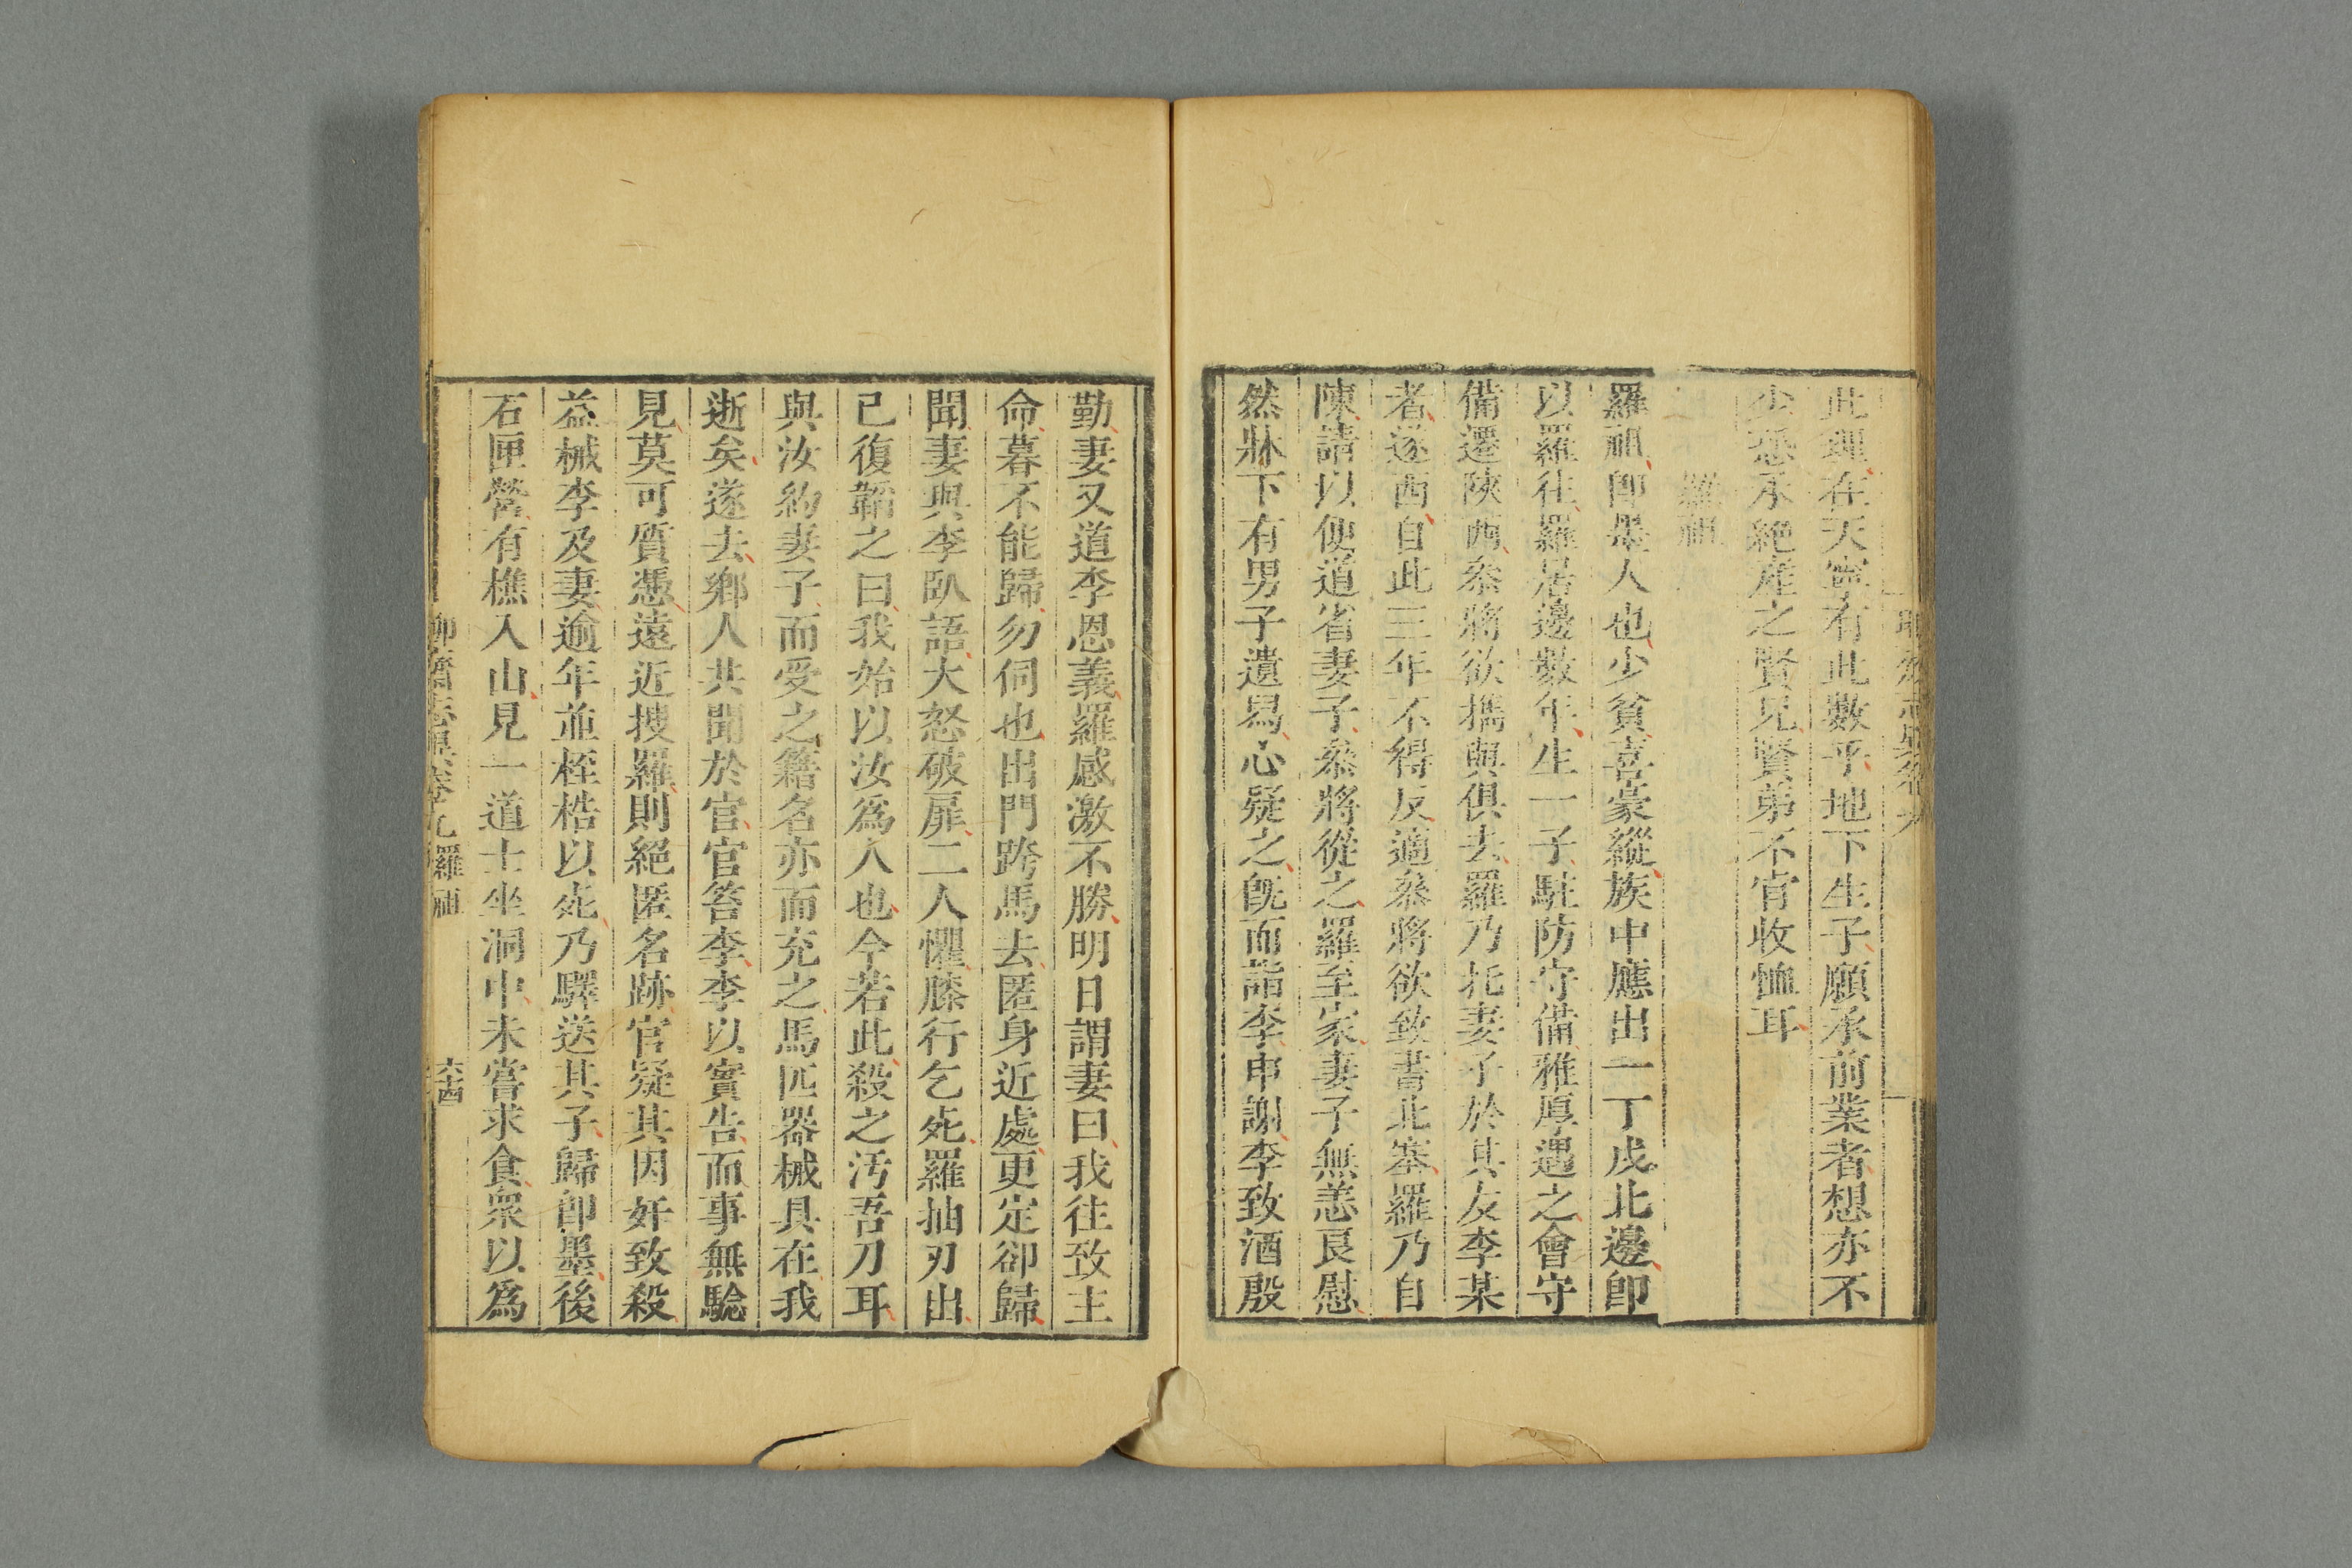 此理在天寧有此數乎地下生子願承前業者想亦不
少恐承絕產之賢兄賢弟不肯收恤耳
羅祖
羅祖卽墨人也少貧喜豪縱族中應出一丁戍北邊卽
以羅往羅居邊數年生一子駐防守備雅厚遇之會守
備遷陝西叅將欲攜與俱去羅乃托妻子於其友李某
者遂西自此三年不得反適叅將欲致書北塞羅乃自
陳請以便道省妻子叅將從之羅至家妻子無恙良慰
然牀下有男子遺舄心疑之旣而詣李申謝李致酒殷
勤妻又道李恩義羅感激不勝明日謂妻曰我往致主
命暮不能歸勿伺也出門跨馬去匿身近處更定卻歸
聞妻與李臥語大怒破扉二人懼膝行乞死羅抽刃出
已復韜之曰我始以汝爲人也今若此殺之汚吾刀耳
與汝約妻子而受之籍名亦而充之馬匹器械具在我
逝矣遂去鄉人共聞於官官笞李李以實告而事無騐
見莫可質憑遠近搜羅則絕匿名跡官疑其因奸致殺
益械李及妻逾年並桎梏以死乃驛送其子歸卽墨後
石匣營有樵入山見一道士坐洞中未嘗求食衆以爲
聊齋志異卷九 羅祖 六十四